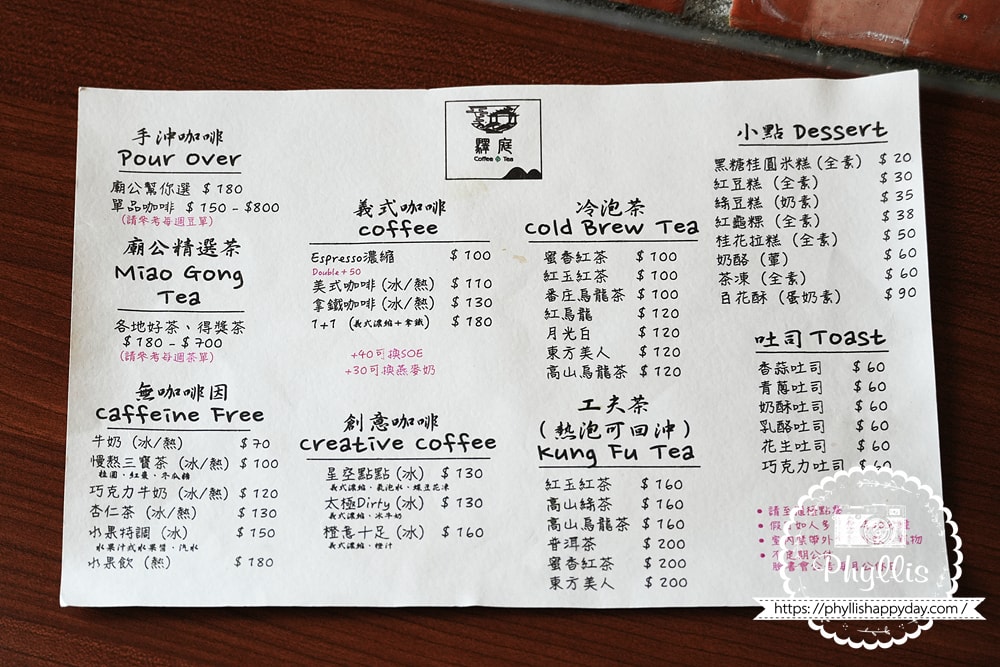 驛庭
Coffee Tea
手沖咖啡
Pour Over
廟公幫你選 $ 180
單品咖啡 $ 150 - $800
(請參考每週豆單)
廟公精選茶
Miao Gong
Tea
各地好茶、得獎茶
$ 180 - $ 700
(請參考每週茶單)
無咖啡因
Caffeine Free
牛奶 (冰/熱) $ 70
慢熬三寶茶 (冰/熱) $ 100
桂圓、紅棗、冬瓜糖
巧克力牛奶 (冰/熱) $ 120
杏仁茶 (冰/熱) $ 130
水果特調 (冰) $ 150
水果汁或水果醬、汽水
水果飲 (熱) $ 180
義式咖啡
coffee
Espresso濃縮 $ 100
Double + 50
美式咖啡 (冰/熱) $ 110
拿鐵咖啡 (冰/熱) $ 130
1+1 (義式濃縮+拿鐵) $ 180
+40可換SOE
+30可換燕麥奶
創意咖啡
creative coffee
星空點點 (冰) $ 130
義式濃縮、氣泡水、蝶豆花凍
太極Dirty (冰) $ 130
義式濃縮、冰牛奶
橙意十足 (冰) $ 160
義式濃縮、橙汁
冷泡茶
Cold Brew Tea
蜜香紅茶 $ 100
紅玉紅茶 $ 100
番庄烏龍茶 $ 100
紅烏龍 $ 120
月光白 $ 120
東方美人 $ 120
高山烏龍茶 $ 120
工夫茶
(熱泡可回沖)
Kung Fu Tea
紅玉紅茶 $ 160
高山綠茶 $ 160
高山烏龍茶 $ 160
普洱茶 $ 200
蜜香紅茶 $ 200
東方美人 $ 200
小點 Dessert
黑糖桂圓米糕 (全素) $ 20
紅豆糕 (全素) $ 30
綠豆糕 (奶素) $ 35
紅龜粿 (全素) $ 38
桂花拉糕 (全素) $ 50
奶酪 (葷) $ 60
茶凍 (全素) $ 60
百花酥 (蛋奶素) $ 90
吐司 Toast
香蒜吐司 $ 60
青蔥吐司 $ 60
奶酥吐司 $ 60
乳酪吐司 $ 60
花生吐司 $ 60
巧克力吐司 $ 60
• 請至櫃檯點餐
• 假 如人多
• 室內禁帶外 物
• 不定期公休
臉書會公告每月公休日
Phyllis
https://phyllishappyday.com/